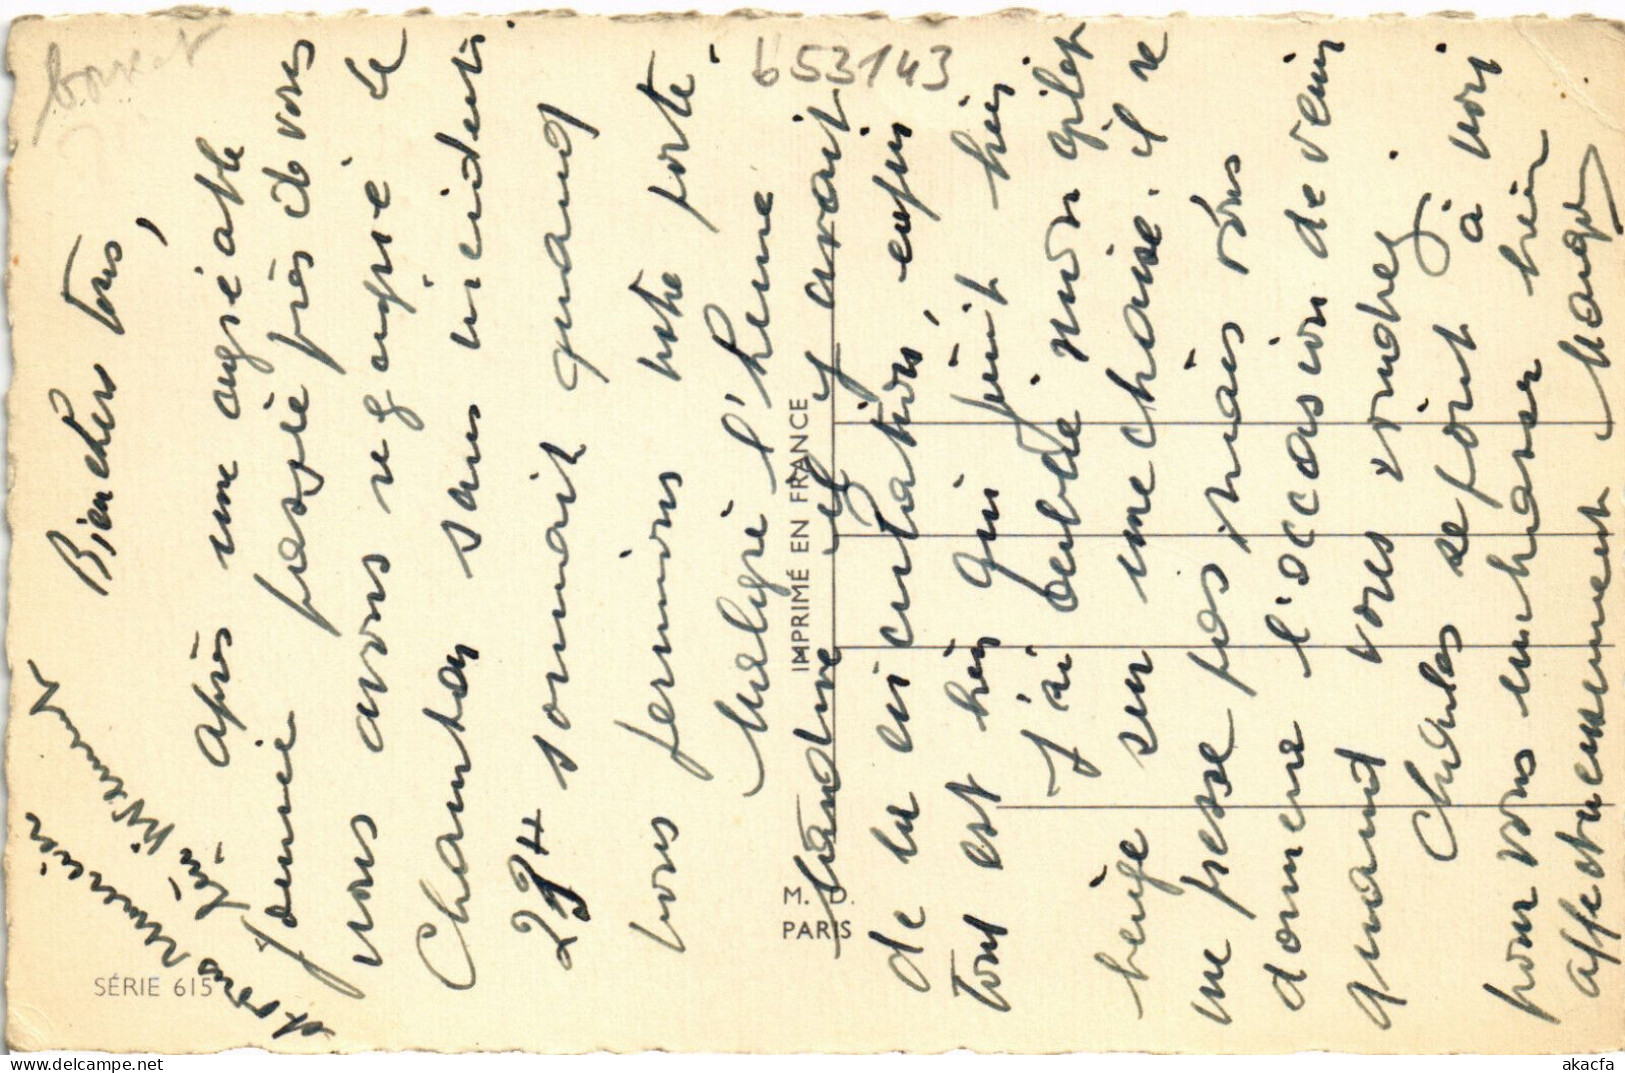 Bien chers tous,
après une agréable
journée passée près de vous
nous avons regagné le
Chambon sans incidents.
23H sonnait quand
nous fermions notre porte.
Malgré l'heure
tardive il y avait
de la circulation, enfin
tout est bien qui finit bien
J'ai oublié mon gilet
beige sur une chaise. il ne
me presse pas mais vous
donnera l'occasion de venir
quand vous voudrez
Charles se joint à moi
pour vous embrasser bien
affectueusement. Margot
et vous remercier
bien vivement
SÉRIE 615
M. D.
PARIS
IMPRIMÉ EN FRANCE
b53143
akacfa